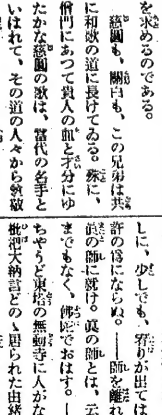 を求めるのである。
慈圓も、關白も、この兄弟は共
に和歌の道に長けてゐる。殊に、
僧門にあつて貴人の血と才分にゆ
たかな慈圓の歌は、當代の名手と
いはれて、その道の人々から敬
しに、少しでも、宥りが出ては
許の爲にならぬ。――師を離れ
眞の師に就け。眞の師とは、云
までもなく、佛陀でおはす。――
ちやうど東塔の無動寺に人がな
枇杷大納言どのゝ居られた由緒